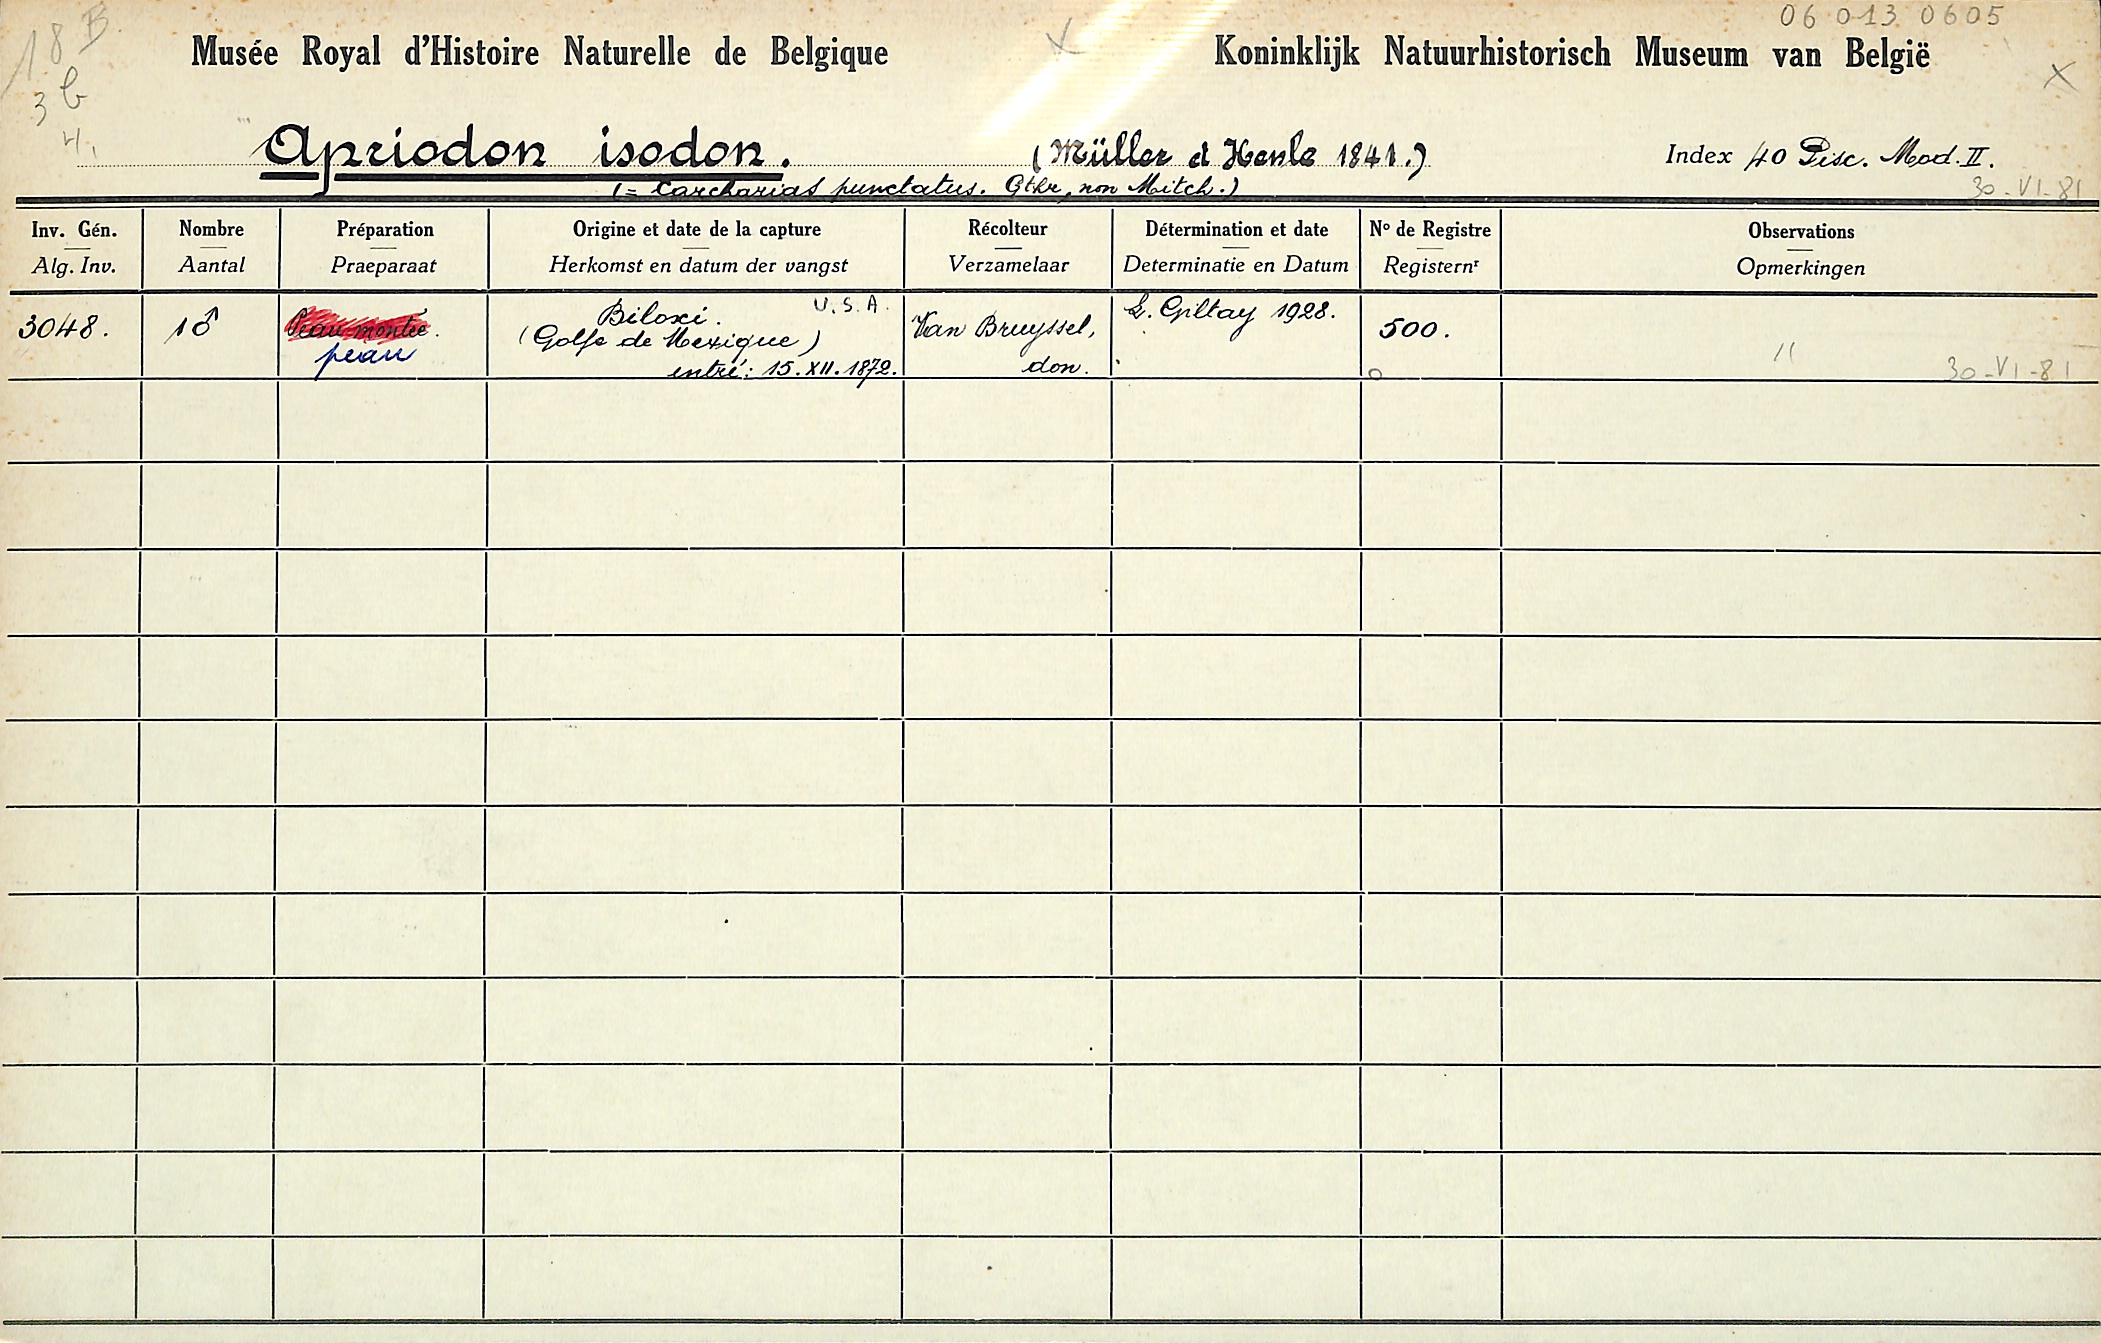 18 B
b
3
4.
06 013 0605
Musée Royal d'Histoire Naturelle de Belgique
X
Koninklijk Natuurhistorisch Museum van België
X
Apriodon isodon. (Müller et Henle 1841.) Index 40 Pisc. Mod. II.
(= Carcharias punctatus. Gthr, non Mitch.) 30-VI-81
Inv. Gén. Nombre Préparation Origine et date de la capture Récolteur Détermination et date No de Registre Observations
Alg. Inv. Aantal Praeparaat Herkomst en datum der vangst Verzamelaar Determinatie en Datum Registernr Opmerkingen
3048. 1♂ Peau montée. Biloxi. U.S.A. Van Bruyssel, L. Giltay 1928. 500.
peau (Golfe de Mexique) don.
entré: 15.XII.1872. 30-VI-81